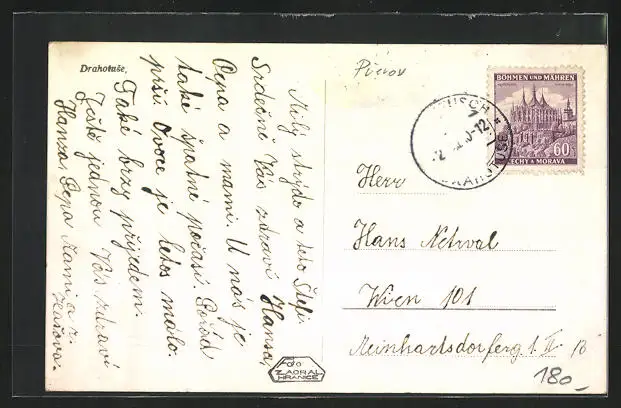 Drahotuše,
Milý strýdo a teto Štefi
Srdečně Vás zdraví Hansa,
Pepa a mami. U nás je
také špatné počasí. Pořád
prší Ovoce je letos málo.
Také brzy přijedem.
Ještě jednou Vás zdraví
Hansa, Pepa Mami a r.
Přerov
BÖHMEN UND MÄHREN
60
ČECHY A MORAVA
Herr
Hans Netrval
Wien 101
Reinhartsdorferg 1. II. 18
Foto
ZAORAL
HRANICE
180.-